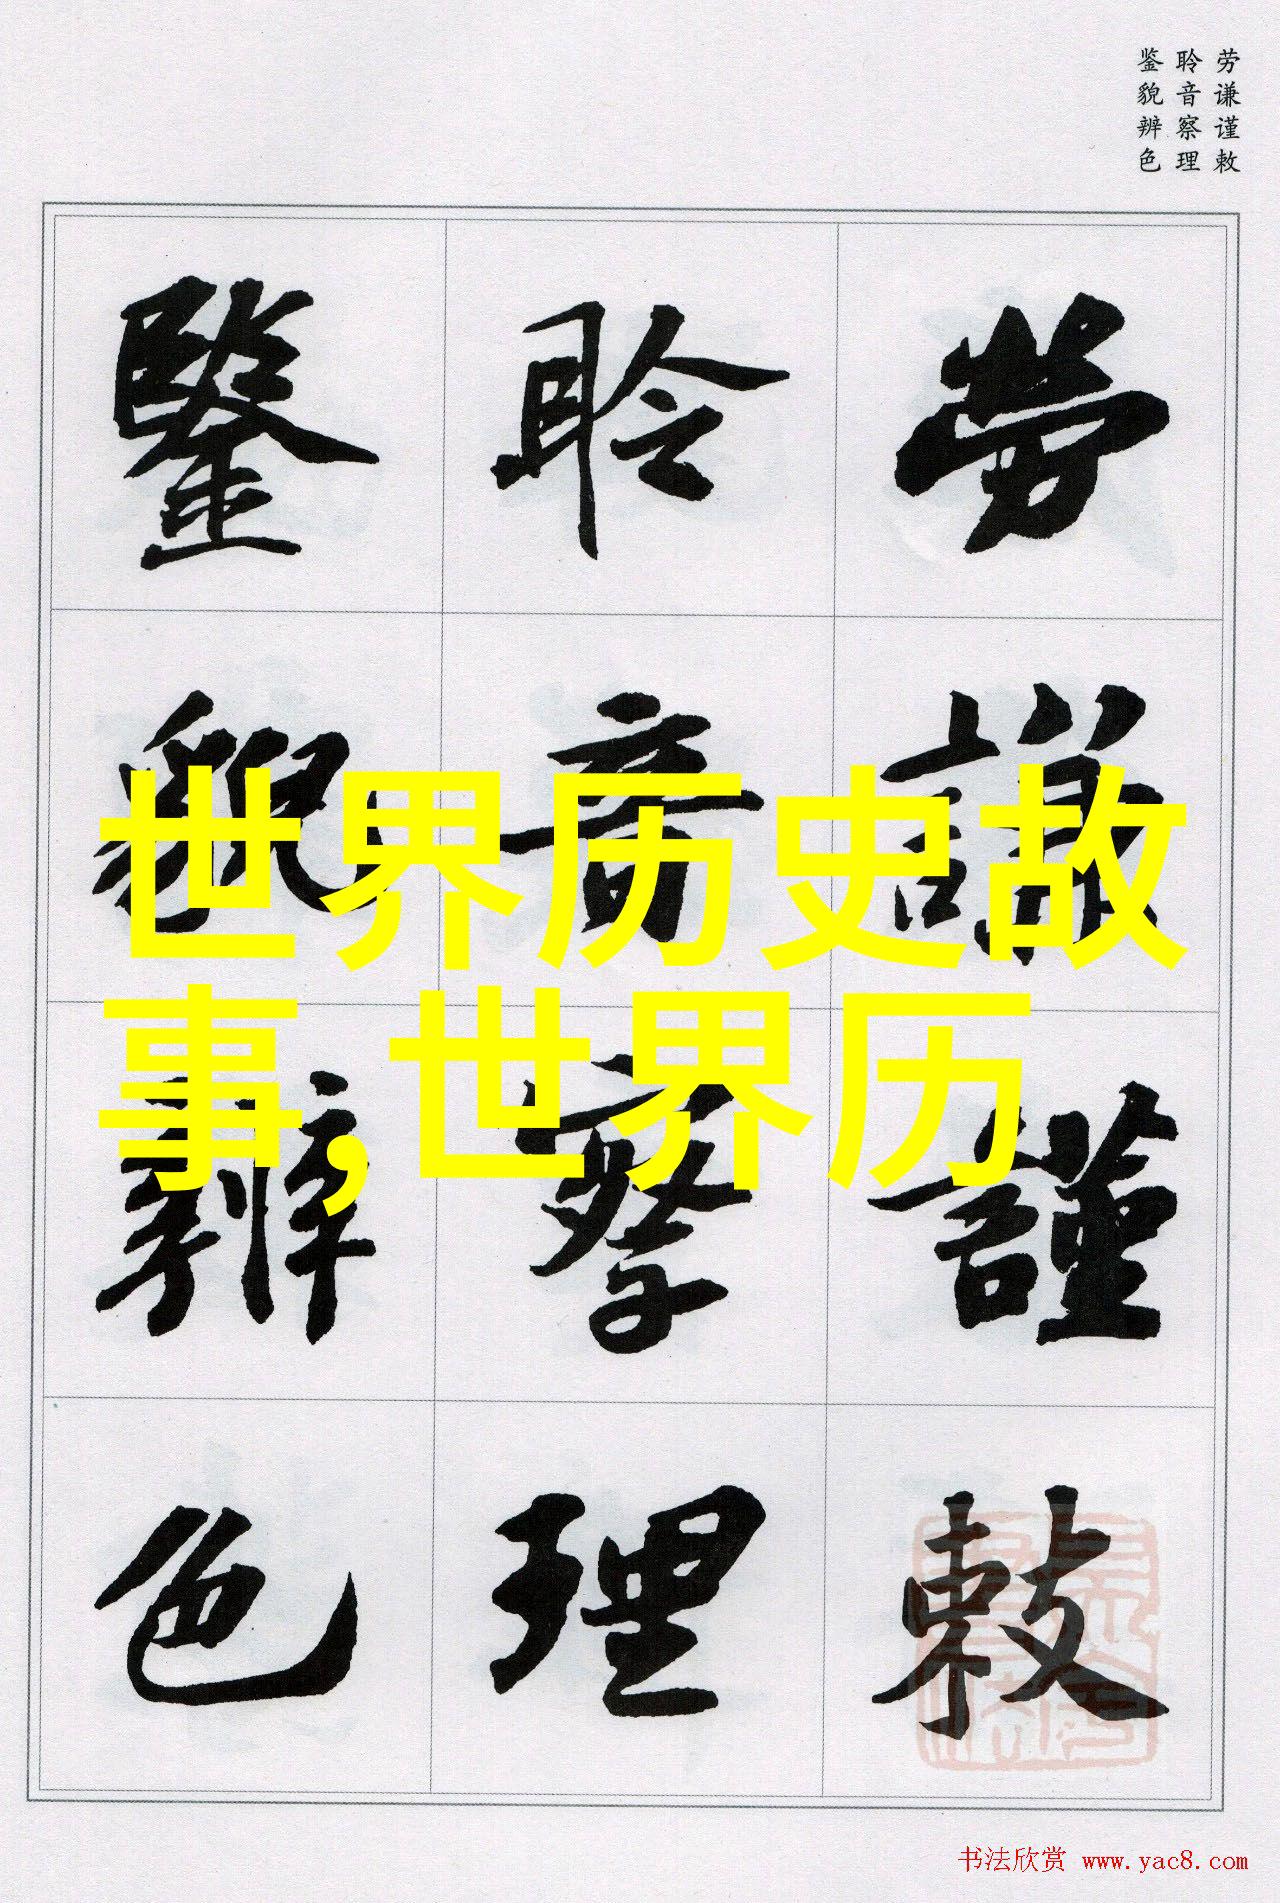 劳谦谨敕
聆音察理
鉴貌辨色
勞謙謹敕
聆音察理
鑒貌辨色
世界历史故
事,世界历
书法欣赏 www.yac8.com